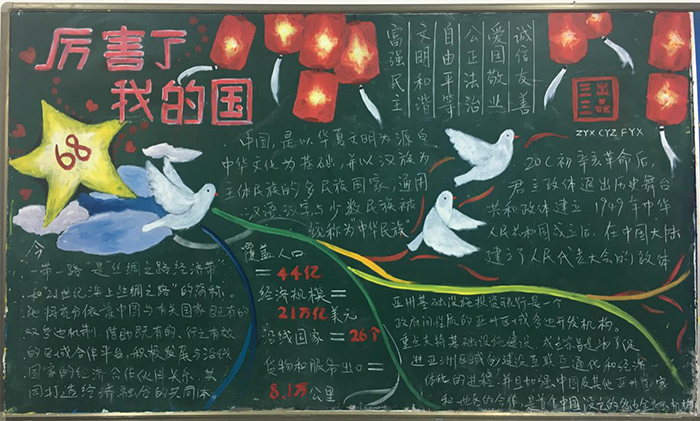 厉害了
我的国
富强民主
文明和谐
自由平等
公正法治
爱国敬业
诚信友善
三三三出品
ZYX CYZ FYX
68
中国，是以华夏文明为源泉
中华文化为基础，并以汉族为
主体民族的多民族国家，通用
汉语汉字，少数民族被
统称为中华民族
20C初辛亥革命后，
君主政体退出历史舞台
共和政体建立。1949年中华
人民共和国成立后，在中国大陆
建立了人民代表大会的政体
今
"一带一路"是"丝绸之路经济带"
和"21世纪海上丝绸之路"的简称。
它将充分依靠中国与有关国家既有的
双多边机制，借助既有的、行之有效
的区域合作平台，积极发展与沿线
国家的经济合作伙伴关系，共
同打造经济融合的共同体
覆盖人口
=44亿
经济规模=
21万亿美元
沿线国家=26个
货物和服务出口=
8.1万公里
亚洲基础设施投资银行是一个
政府间性质的亚洲区域多边开发机构。
重点支持基础设施建设，成立宗旨是为了促
进亚洲区域的建设互联互通化和经济
一体化的进程，并且加强中国及其他亚洲国家
和地区的合作，是首个中国设立的多边金融机构